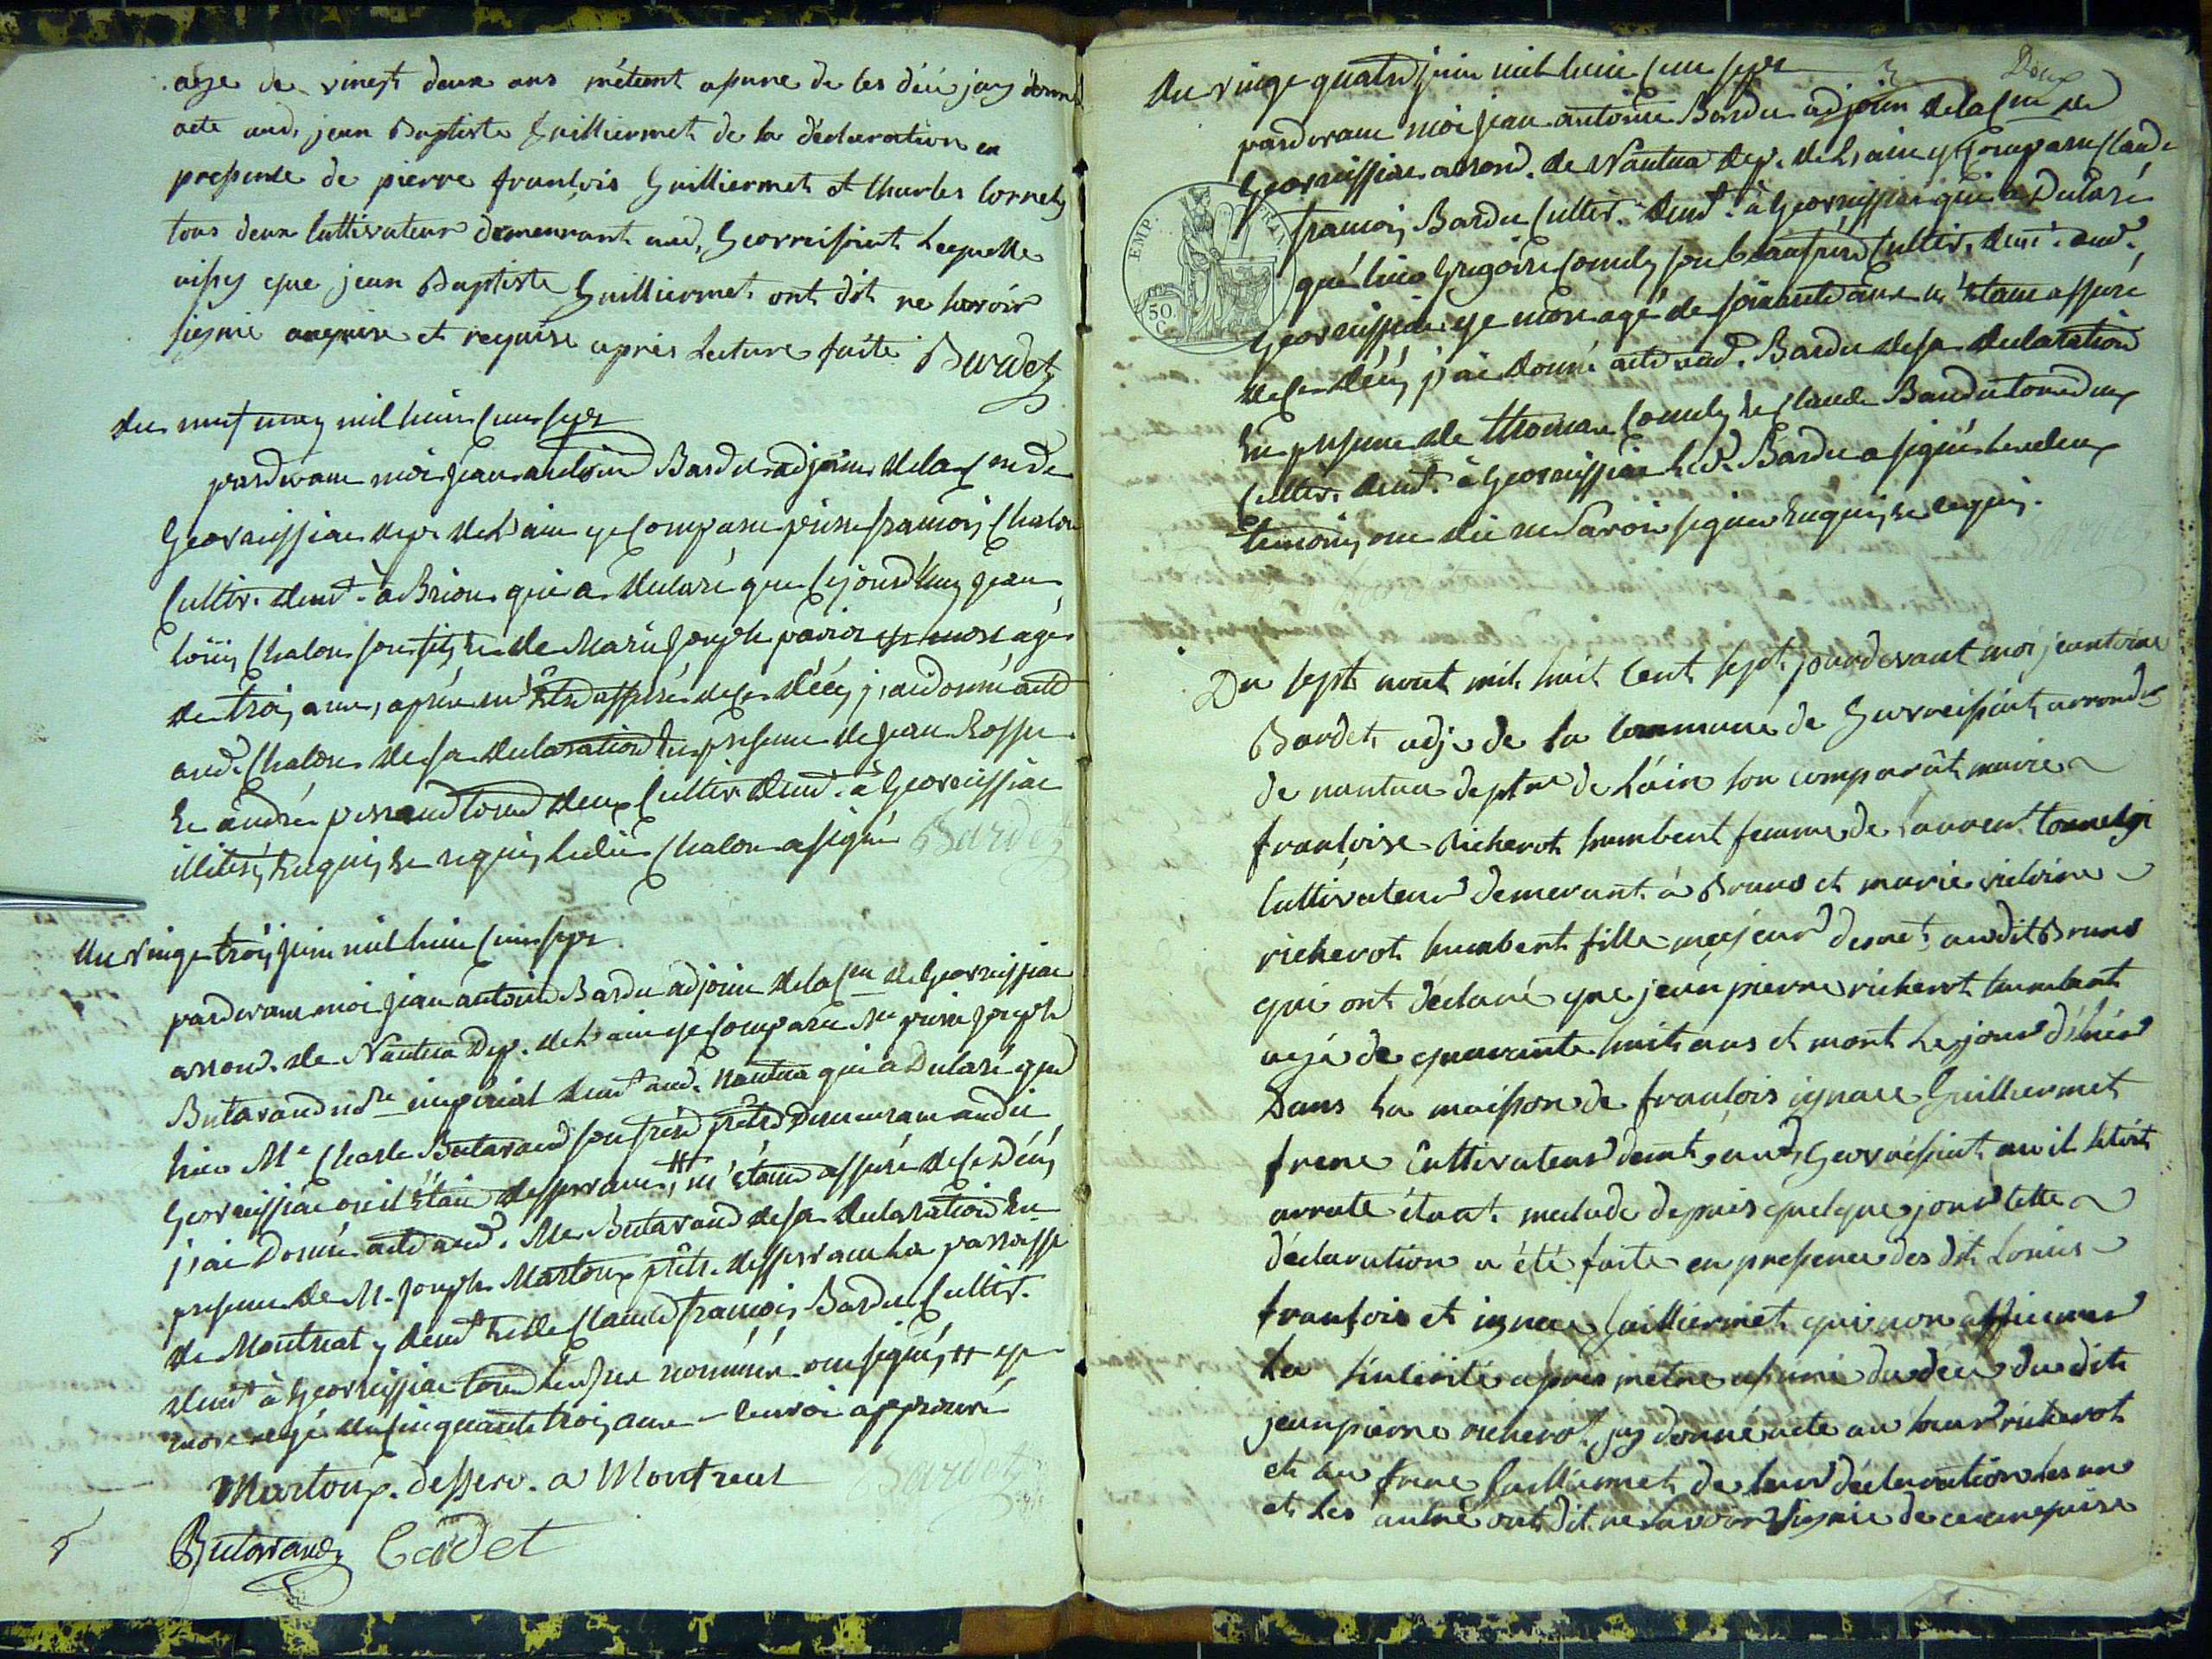 age de vingt deux ans métant asuré de les décé jay donné
acte aud. jean Baptiste Guilliermet de la déclaration en
presence de pierre françois Guilliermet et Charles Cornet
tous deux Cultivateur demeurant aud. Georeissiat Lequelle
aissy que jean Baptiste Guilliermet ont dit ne savoir
signié anquise et requise apris Lecture faite Bardet
du neuf may mil huit Cent sept
pardevant moi Jean antoine Bardet adjoint de la Cne de
Georeissiac dep. de L'ain est Comparu pierre françois Chalon
Cultiv. demt. à Brion qui a declaré que Cejourd'huy Jean
Loüis Chalon son fils et de Marie Joseph pavier est mort agé
de trois ans, après m'être assuré de Ce décès j'ai donné acte
aud. Chalon de sa declaration En presence de Jean Rosse
Et andré perraud tous deux Cultiv. demt. à Georeissiac
illiterés Enquis et requis Ledit Chalon a signé Bardet
du vingt trois juin mil huit Cent sept
pardevant moi Jean antoine Bardet adjoint de la Cne de Georeissiac
arrond. de Nantua Dep. de L'ain est Comparu Mre pierre Joseph
Butavand notre impérial demt aud. Nantua qui a Declaré que
hier Mr Charle Butavand son frère prêtre Demeurant audit
Georeissiac où il Etait desservant, # m'étant assuré de Ce Décès
j'ai Donné acte aud. Me Butavand de sa declaration En
presence de M. Joseph Martoux prêtr. desservant La paroisse
de Montreal y demt. Et de Claude françois Bardet Cultiv.
demt à Georeissiac tous Les sus nommés ont signés # est
mort agé de Cinquante trois ans - renvoi approuvé
Martoux. desserv. a Montreal Bardet
Butavand Cadet
Deux
du vingt quatre juin mil huit Cent sept
pardevant moi Jean antoine Bardet adjoint de la Cne de
Georeissiac arrond. de Nantua dep. de L'ain est Comparu Claude
françois Bardet Cultiv. demt. à Georeissiac qui a Declaré
qué hier Grégoire Comely son beaufrère Cultiv. demt. aud.
Georeissiac est mort agé de soixante ans m'étant assuré
de Ce décès j'ai donné acte aud. Bardet de sa declaration
En presence de thomas Comely et Claude Bardet tous deux
Cultiv. demt. à Georeissiac Led. Bardet a signé Les deux
temoins ont dit ne Savoir signer Enquis et requis.
EMP. FRAN
50.
C.
Bardet
Du sept aout mil huit Cent sept pardevant moi jeantoine
Bardet adj. de la Commune de Georreissiat arrondt
de nantua deptmt de L'ain son comparût marie
françoise richerot humbert femme de Laurent tournelgi
Cultivateur demerant à Bruno et marie victoire
richerot humbert fille majeur demt, audit Bruno
qui ont déclaré que jean pierre richerot humbert
agé de quarante huit ans et mort Le jour d'hier
Dans La maison de françois ignace Guilliermet
frere Cultivateur demt aud Georreissiat auil sétoit
arrate étant malade depuis quelque jour Cette
déclaration a été faite en presence des dit Louis
françois et ignace Guilliermet qui non affirmer
La sinlérité apres métre asuré du décé du dit
jeanpierre richerot, jay donné acte au sœur richerot
et au frere Guilliermet de Leur déclaration les un
et Les autre ont dit ne savoir signié de ce anquise